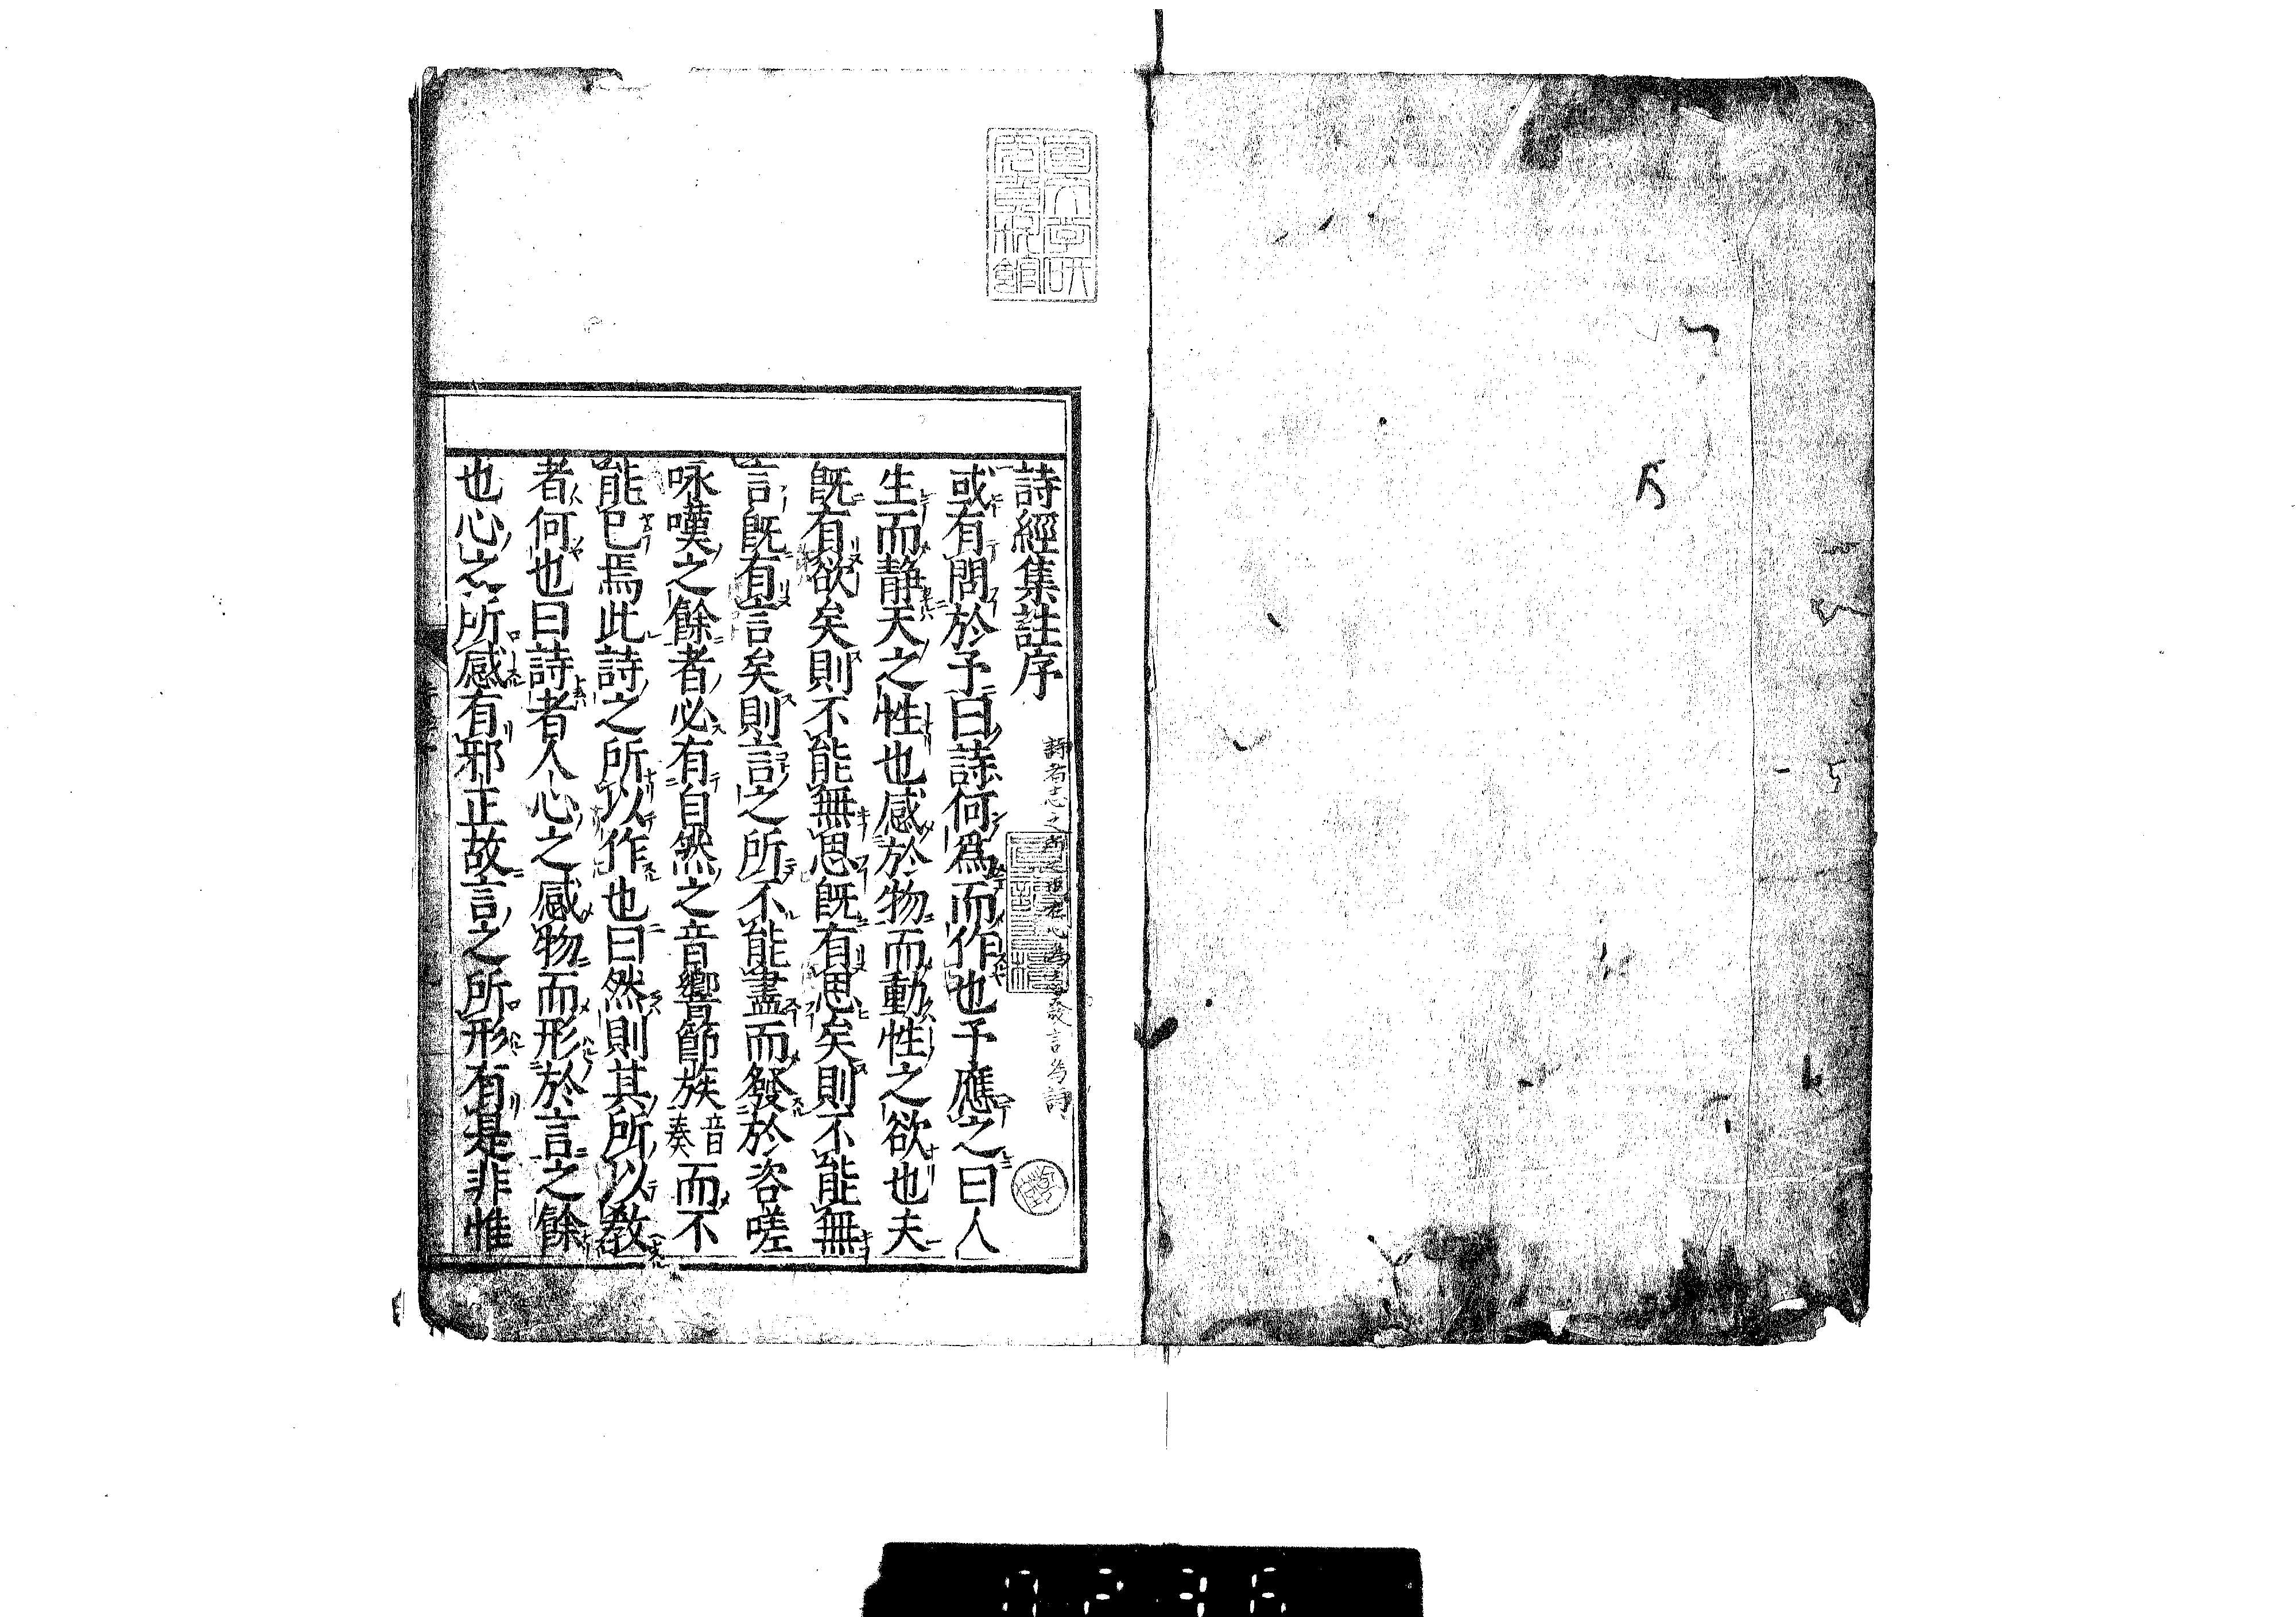 詩經集註序
詩者志之所之也在心爲志發言為詩
或有問於予曰詩何爲而作也予應之曰人
生而静天之性也感於物而動性之欲也夫
既有欲矣則不能無思既有思矣則不能無
言既有言矣則言之所不能盡而發於咨嗟
咏嘆之餘者必有自然之音響節族音奏而不
能已焉此詩之所以作也曰然則其所以教
者何也曰詩者人心之感物而形於言之餘
也心之所感有邪正故言之所形有是非惟